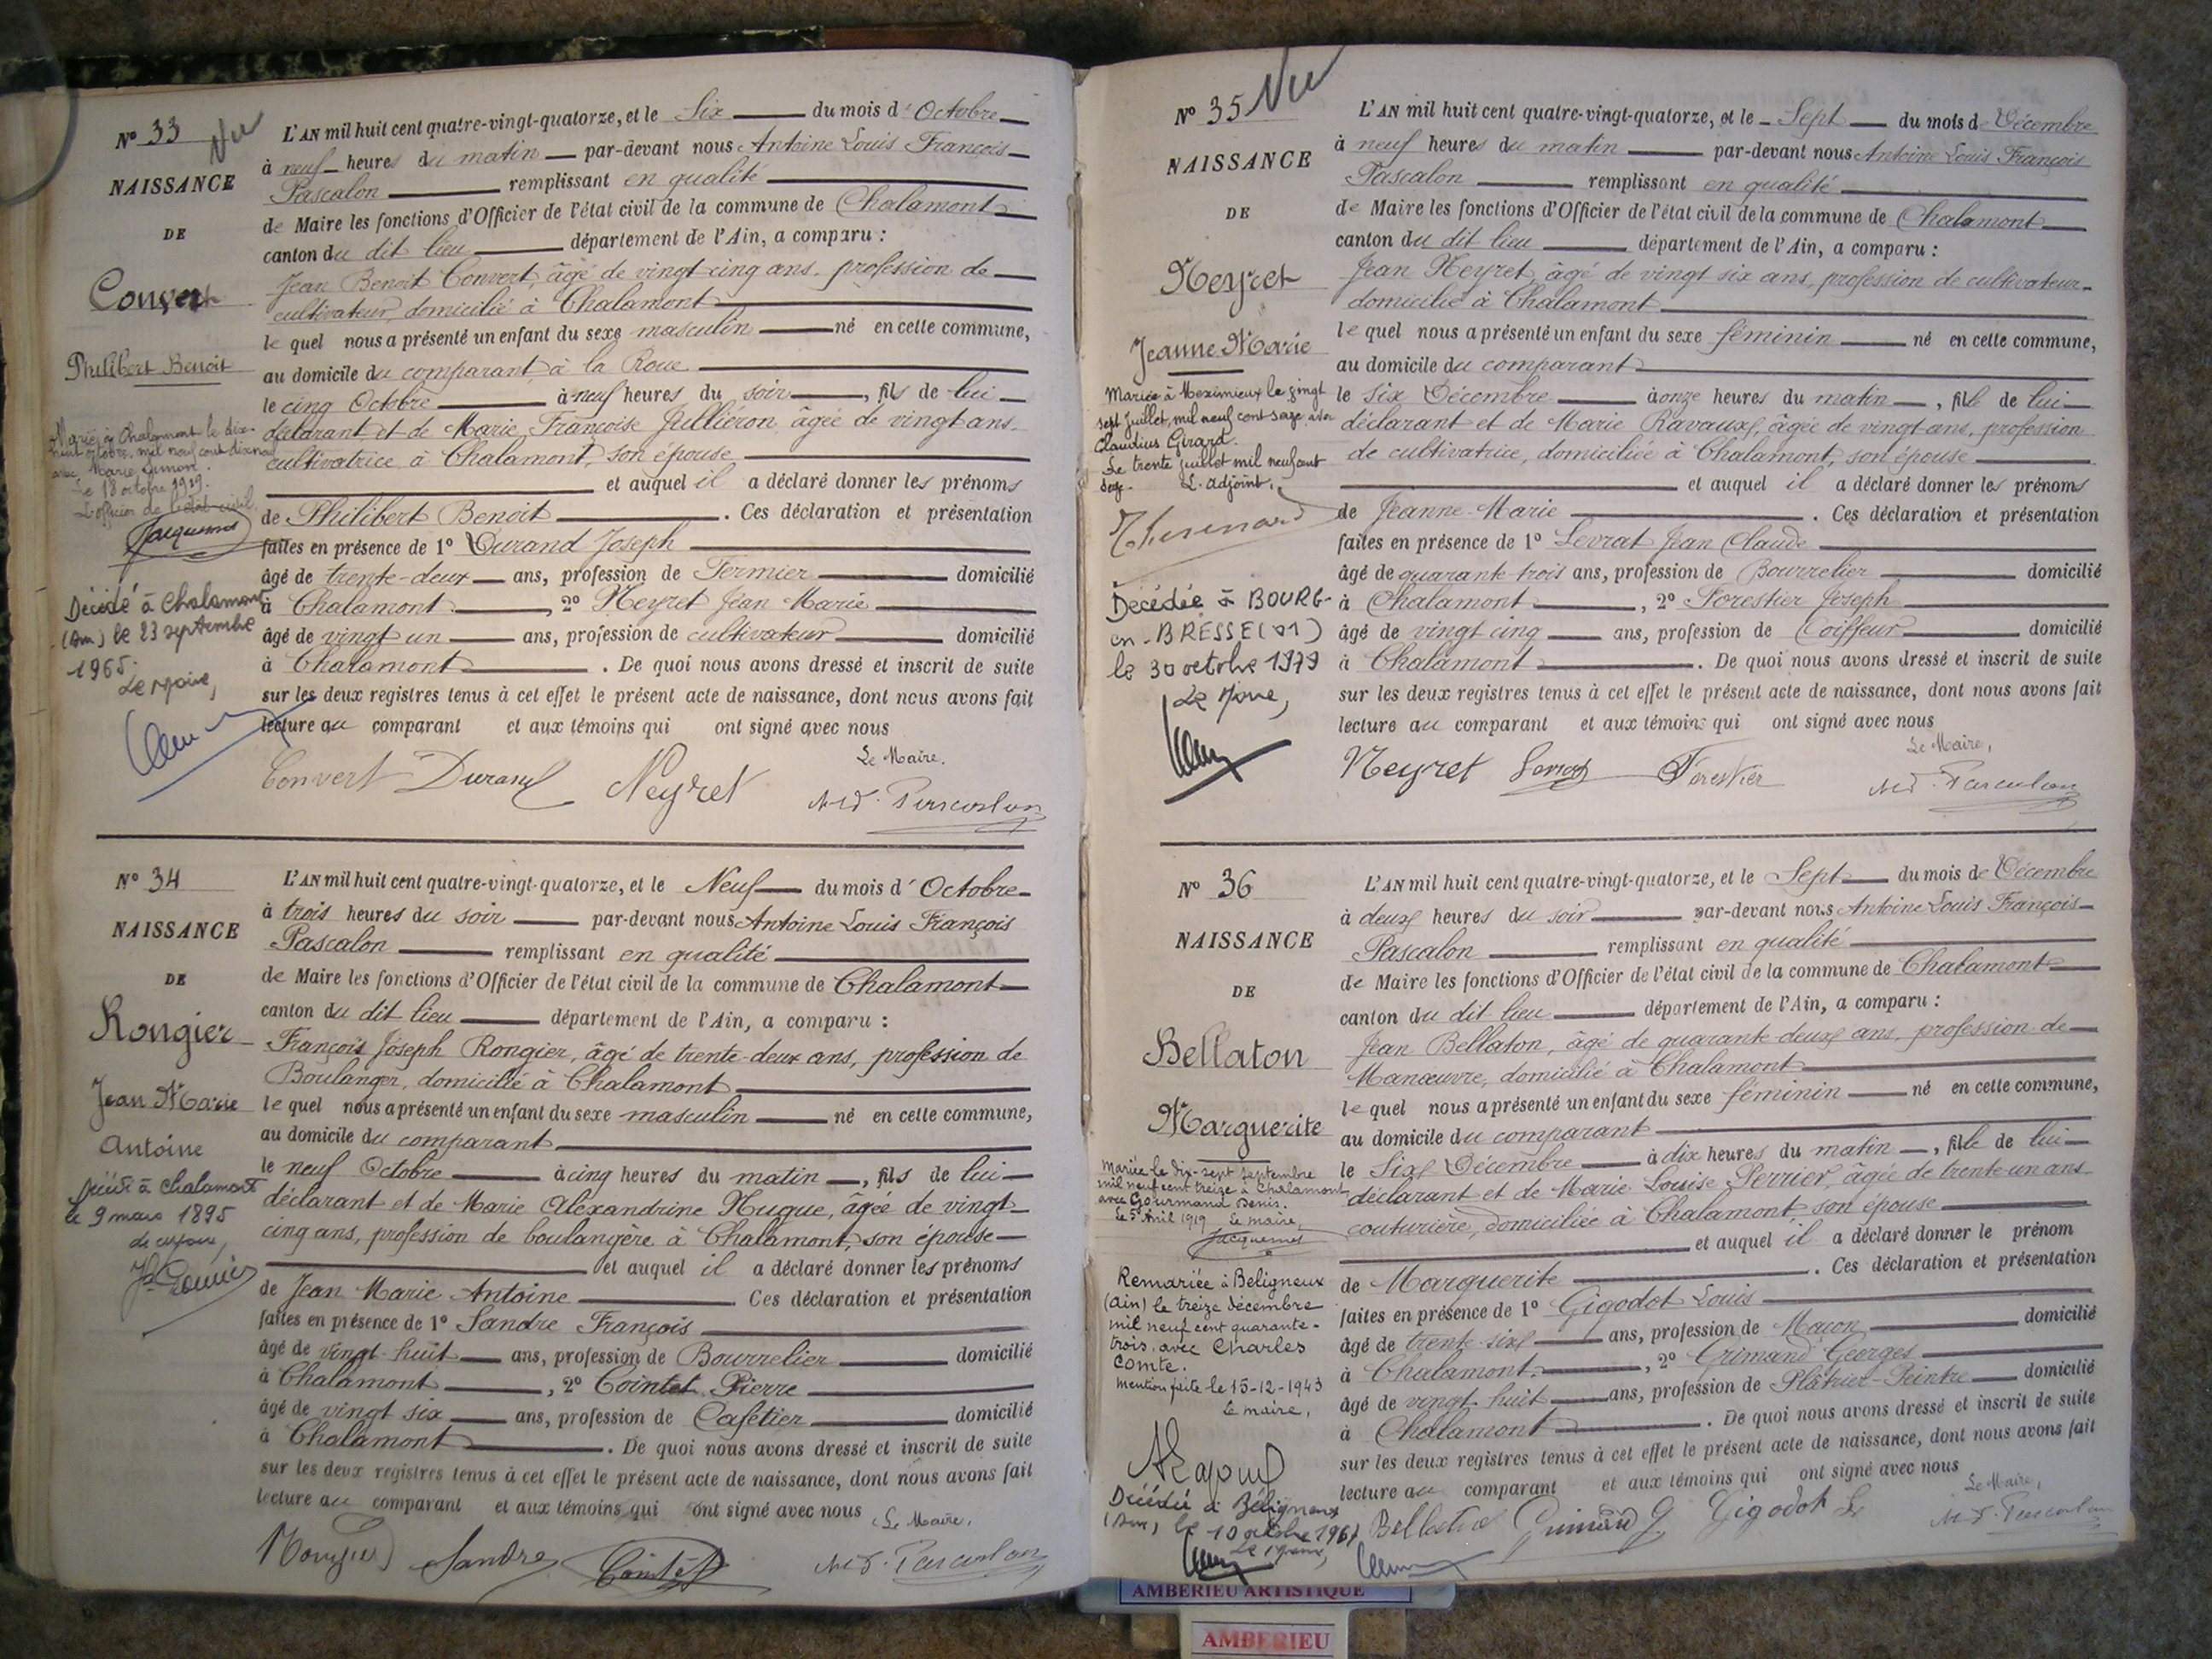 N° 33 Vu
NAISSANCE
DE
Convert
Philibert Benoit
Marié à Chalamont le dix-
huit octobre, mil neuf cent dix neuf
avec Marie
Le 18 octobre 1919.
L'officier de l'état civil.
Jacquemet
Décédé à Chalamont
(Ain) le 23 septembre
1965.
Le Maire,
L'AN mil huit cent quatre-vingt-quatorze, et le Six du mois d'Octobre
à neuf heures du matin par-devant nous Antoine Louis François
Pascalon remplissant en qualité
de Maire les fonctions d'Officier de l'état civil de la commune de Chalamont
canton du dit lieu département de l'Ain, a comparu :
Jean Benoit Convert, âgé de vingt-cinq ans, profession de
cultivateur, domicilié à Chalamont
lequel nous a présenté un enfant du sexe masculin né en cette commune,
au domicile du comparant, à la Roue
le cinq Octobre à neuf heures du soir, fils de lui
déclarant et de Marie Françoise Jullièron âgée de vingt ans.
cultivatrice à Chalamont, son épouse
et auquel il a déclaré donner les prénoms
de Philibert Benoit. Ces déclaration et présentation
faites en présence de 1° Durand Joseph
âgé de trente-deux ans, profession de Fermier domicilié
à Chalamont, 2° Neyret Jean Marie
âgé de vingt un ans, profession de cultivateur domicilié
à Chalamont. De quoi nous avons dressé et inscrit de suite
sur les deux registres tenus à cet effet le présent acte de naissance, dont nous avons fait
lecture au comparant et aux témoins qui ont signé avec nous
Le Maire.
Convert Durand Neyret Pascalon
N° 34
NAISSANCE
DE
Rongier
Jean Marie
Antoine
Décédé à Chalamont
le 9 mars 1895
L'AN mil huit cent quatre-vingt-quatorze, et le Neuf du mois d'Octobre
à trois heures du soir par-devant nous Antoine Louis François
Pascalon remplissant en qualité
de Maire les fonctions d'Officier de l'état civil de la commune de Chalamont
canton du dit lieu département de l'Ain, a comparu :
François Joseph Rongier, âgé de trente-deux ans, profession de
Boulanger, domicilié à Chalamont
lequel nous a présenté un enfant du sexe masculin né en cette commune,
au domicile du comparant
le neuf Octobre à cinq heures du matin, fils de lui
déclarant et de Marie Alexandrine Hugue, âgée de vingt
cinq ans, profession de boulangère à Chalamont, son épouse
et auquel il a déclaré donner les prénoms
de Jean Marie Antoine Ces déclaration et présentation
faites en présence de 1° Sandre François
âgé de vingt-huit ans, profession de Bourrelier domicilié
à Chalamont, 2° Cointet Pierre
âgé de vingt six ans, profession de Cafétier domicilié
à Chalamont. De quoi nous avons dressé et inscrit de suite
sur les deux registres tenus à cet effet le présent acte de naissance, dont nous avons fait
lecture au comparant et aux témoins qui ont signé avec nous
Le Maire.
Rongier Sandre Cointet Pascalon
N° 35 Vu
NAISSANCE
DE
Neyret
Jeanne Marie
Mariée à Meximieux le vingt
sept juillet, mil neuf cent seize avec
Claudius Girard.
Le trente juillet mil neuf cent
seize. L'adjoint,
Décédée à BOURG-
en-BRESSE (01)
le 30 octobre 1979
Le Maire,
L'AN mil huit cent quatre-vingt-quatorze, et le Sept du mois de Décembre
à neuf heures du matin par-devant nous Antoine Louis François
Pascalon remplissant en qualité
de Maire les fonctions d'Officier de l'état civil de la commune de Chalamont
canton du dit lieu département de l'Ain, a comparu :
Jean Neyret, âgé de vingt six ans, profession de cultivateur
domicilié à Chalamont
lequel nous a présenté un enfant du sexe féminin né en cette commune,
au domicile du comparant
le six Décembre à onze heures du matin, fille de lui
déclarant et de Marie Ravaux, âgée de vingt ans, profession
de cultivatrice, domiciliée à Chalamont, son épouse
et auquel il a déclaré donner les prénoms
de Jeanne-Marie. Ces déclaration et présentation
faites en présence de 1° Levrat Jean Claude
âgé de quarante-trois ans, profession de Bourrelier domicilié
à Chalamont, 2° Forestier Joseph
âgé de vingt cinq ans, profession de Coiffeur domicilié
à Chalamont. De quoi nous avons dressé et inscrit de suite
sur les deux registres tenus à cet effet le présent acte de naissance, dont nous avons fait
lecture au comparant et aux témoins qui ont signé avec nous
Le Maire,
Neyret Levrat Forestier Pascalon
N° 36
NAISSANCE
DE
Bellaton
Marguerite
Mariée le dix-sept septembre
mil neuf cent treize à Chalamont
avec Gourmand Denis.
Le 5 Avril 1919 Le maire,
Jacquemet
Remariée à Beligneux
(Ain) le treize décembre
mil neuf cent quarante-
trois, avec Charles
Comte.
Mention faite le 15-12-1943
Le maire,
Décédée à Béligneux
(Ain) le 10 octobre 1961
Le Maire,
L'AN mil huit cent quatre-vingt-quatorze, et le Sept du mois de Décembre
à deux heures du soir par-devant nous Antoine Louis François
Pascalon remplissant en qualité
de Maire les fonctions d'Officier de l'état civil de la commune de Chalamont
canton du dit lieu département de l'Ain, a comparu :
Jean Bellaton, âgé de quarante-deux ans, profession de
Manœuvre, domicilié à Chalamont
lequel nous a présenté un enfant du sexe féminin né en cette commune,
au domicile du comparant
le Six Décembre à dix heures du matin, fille de lui
déclarant et de Marie Louise Perrier, âgée de trente-un ans
couturière, domiciliée à Chalamont, son épouse
et auquel il a déclaré donner le prénom
de Marguerite. Ces déclaration et présentation
faites en présence de 1° Gigodot Louis
âgé de trente-six ans, profession de Maçon domicilié
à Chalamont, 2° Grimand Georges
âgé de vingt-huit ans, profession de Plâtrier-Peintre domicilié
à Chalamont. De quoi nous avons dressé et inscrit de suite
sur les deux registres tenus à cet effet le présent acte de naissance, dont nous avons fait
lecture au comparant et aux témoins qui ont signé avec nous
Le Maire,
Bellaton Grimand G Gigodot L Pascalon
AMBERIEU ARTISTIQUE
AMBERIEU